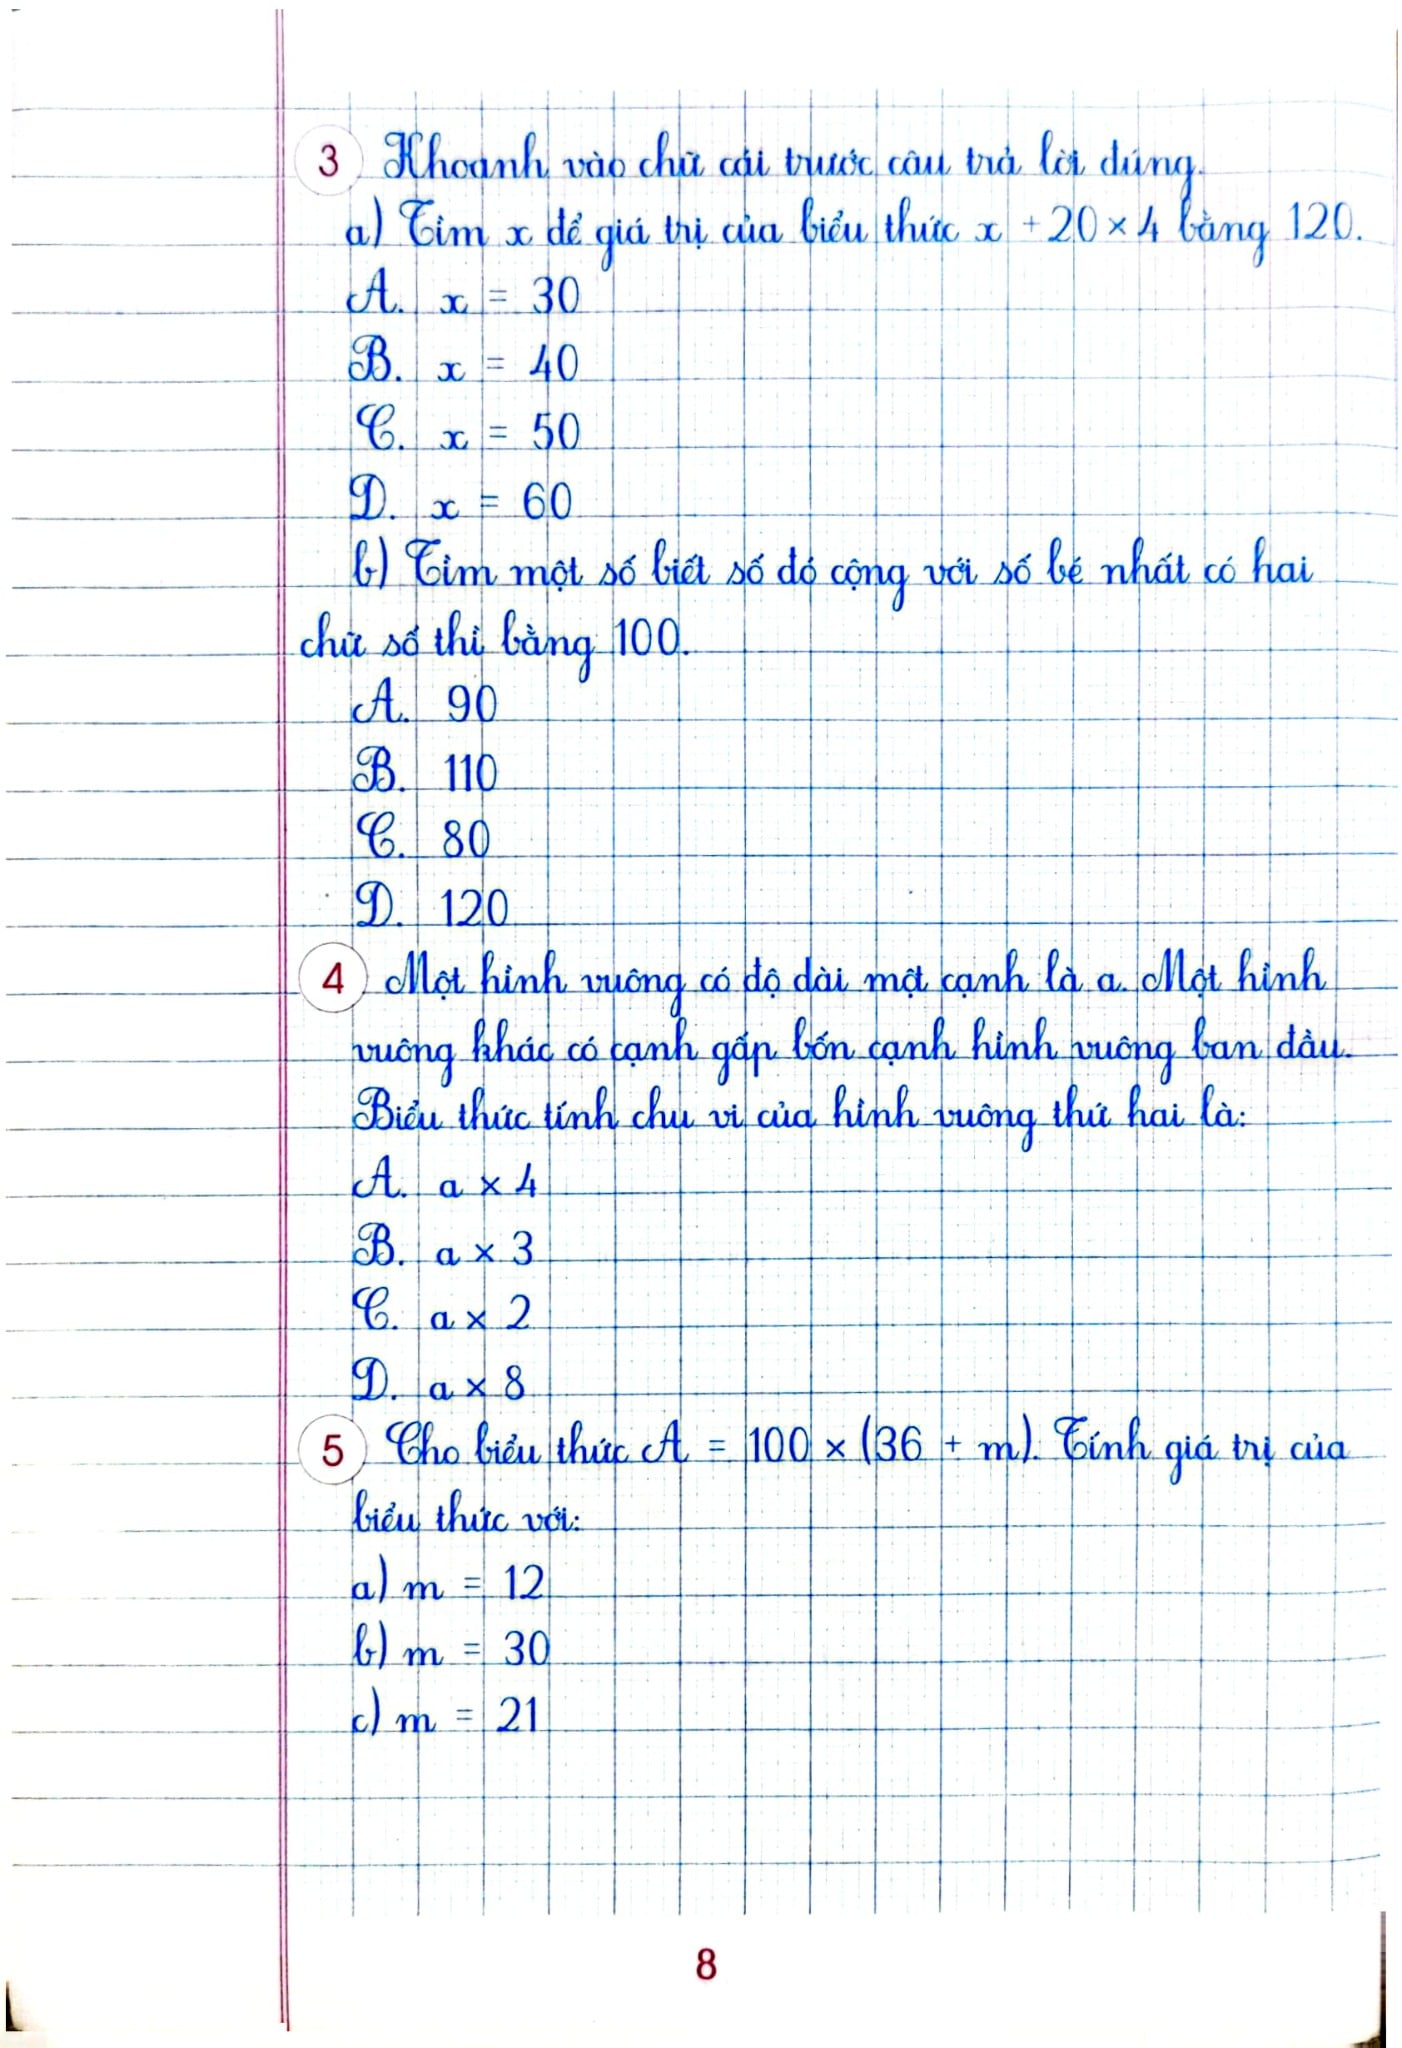 3 Khoanh vào chữ cái trước câu trả lời đúng.
a) Tìm x để giá trị của biểu thức x + 20 × 4 bằng 120.
A. x = 30
B. x = 40
C. x = 50
D. x = 60
b) Tìm một số biết số đó cộng với số bé nhất có hai
chữ số thì bằng 100.
A. 90
B. 110
C. 80
D. 120
4 Một hình vuông có độ dài một cạnh là a. Một hình
vuông khác có cạnh gấp bốn cạnh hình vuông ban đầu.
Biểu thức tính chu vi của hình vuông thứ hai là:
A. a × 4
B. a × 3
C. a × 2
D. a × 8
5 Cho biểu thức A = 100 × (36 + m). Tính giá trị của
biểu thức với:
a) m = 12
b) m = 30
c) m = 21
8